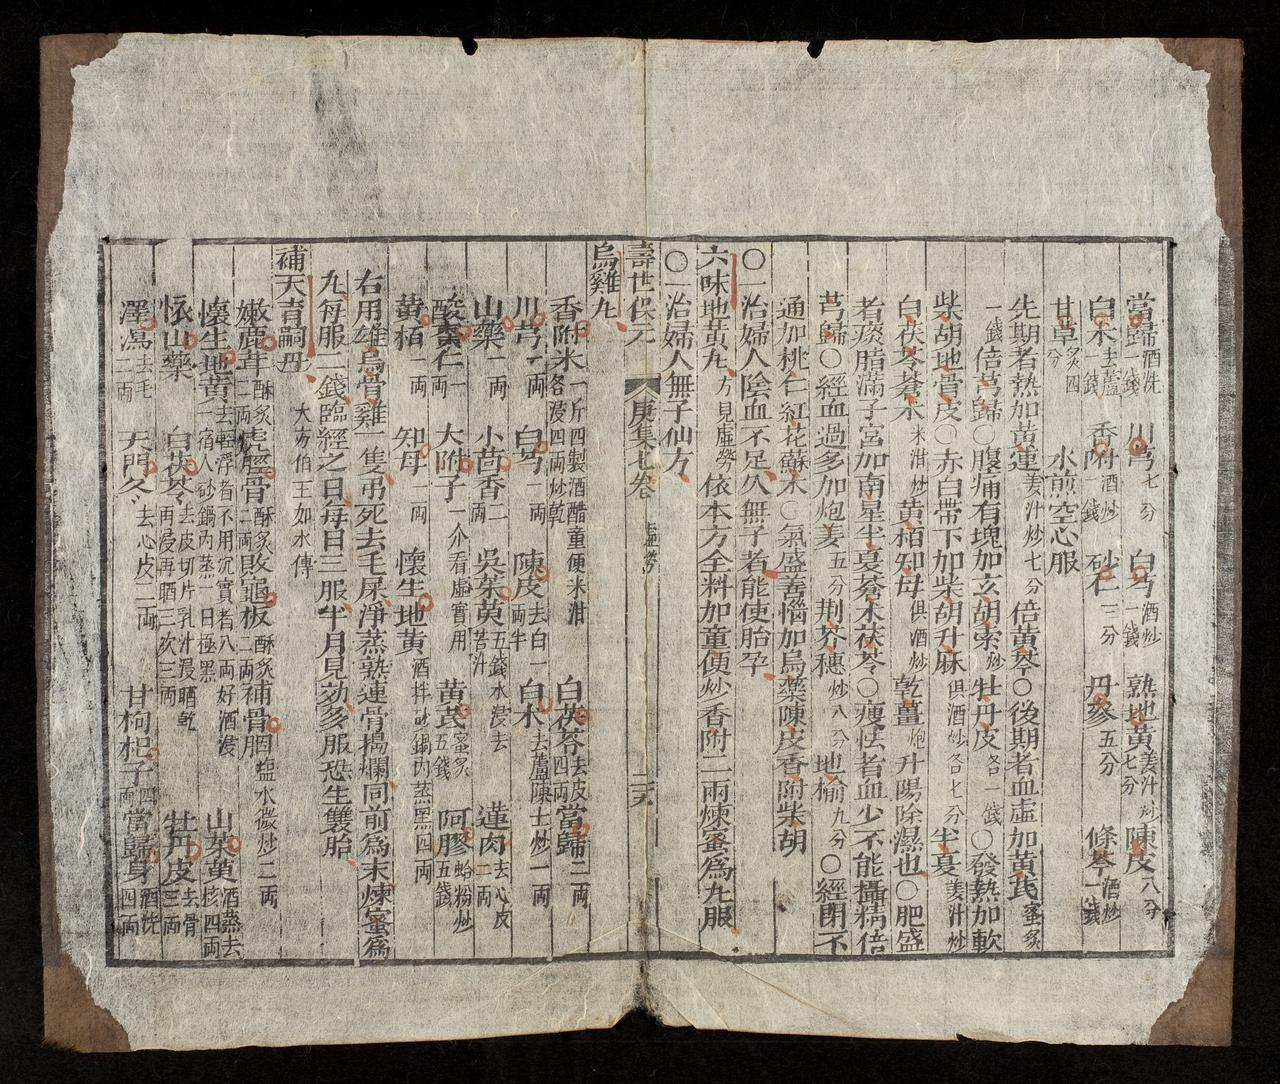 當歸酒洗一錢 川芎七分 白芍酒炒一錢 熟地黃姜汁炒七分 陳皮八分
白朮去蘆一錢 香附酒炒一錢 砂仁三分 丹參五分 條芩酒炒一錢
甘草炙四分 水煎空心服
先期者熱加黃連姜汁炒七分倍黃芩○後期者血虛加黃芪蜜炙
一錢倍芎歸○腹痛有塊加玄胡索炒牡丹皮各一錢○發熱加軟
柴胡地骨皮○赤白帶下加柴胡升麻俱酒炒各七分半夏姜汁炒
白茯苓蒼朮米泔炒黃栢知母俱酒炒乾薑炮升陽除濕也○肥盛
者痰脂滿子宮加南星半夏蒼朮茯苓○瘦怯者血少不能攝精倍
芎歸○經血過多加炮姜五分荆芥穗炒八分地榆九分○經閉不
通加桃仁紅花蘇木○氣盛善惱加烏藥陳皮香附柴胡
○一治婦人陰血不足久無子者能使胎孕
六味地黃丸方見虛勞依本方全料加童便炒香附二兩煉蜜為丸服
○一治婦人無子仙方
壽世保元 庚集七卷 虛勞 二十六
烏雞丸
香附米一斤四製酒醋童便米泔各浸四兩炒乾 白茯苓去皮四兩 當歸二兩
川芎一兩 白芍一兩 陳皮去白一兩半 白朮去蘆陳土炒一兩
山藥一兩 小茴香二兩 吳茱萸五錢水浸去苦汁 蓮肉去心皮二兩
酸棗仁一兩 大附子一介看虛實用 黃芪蜜炙五錢 阿膠蛤粉炒五錢
黃栢一兩 知母一兩 懷生地黃酒拌砂鍋內蒸黑四兩
右用雄烏骨雞一隻弔死去毛屎淨蒸熟連骨搗爛同前為末煉蜜為
丸每服二錢臨經之日每日三服半月見効多服恐生雙胎
補天育嗣丹 大方伯王如水傳
嫩鹿茸酥炙一兩 虎脛骨酥炙二兩 敗龜板酥炙二兩 補骨脂塩水微炒二兩
懷生地黃去輕浮者不用沉實者八兩好酒浸一宿入砂鍋內蒸一日極黑 山茱萸酒蒸去核四兩
懷山藥 白茯苓去皮切片乳汁浸晒乾再浸再晒三次三兩 牡丹皮去骨三兩
澤瀉去毛二兩 天門冬去心皮二兩 甘枸杞子四兩 當歸身酒洗四兩